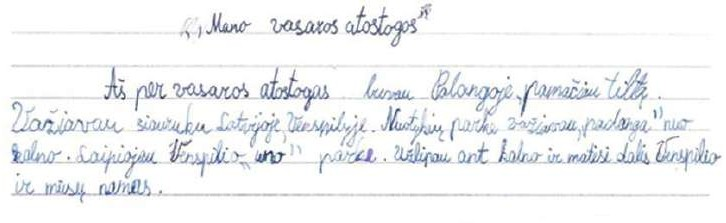 „Mano vasaros atostogos“
Aš per vasaros atostogas buvau Palangoje, pamačiau tiltą.
Važiavau siauruku Latvijoje Venspilyje. Nuotykių parke važiavau „padanga“ nuo
kalno. Laipiojau Venspilio „uno“ parke. Užlipau ant kalno ir matėsi dalis Venspilio
ir mūsų namas.